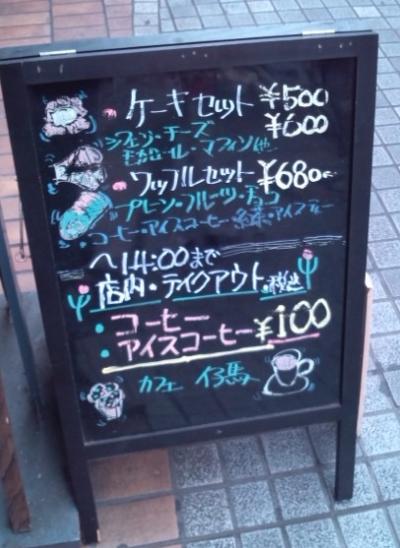 ・ケーキセット ¥500
¥600
シフォン・チーズ
ロール・マフィン他
・ワッフルセット ¥680
プレーン・フルーツ・チョコ
・コーヒー・アイスコーヒー 紅茶・アイスティー
〜14:00まで
店内・テイクアウト 税込
・コーヒー
・アイスコーヒー ¥100
カフェ